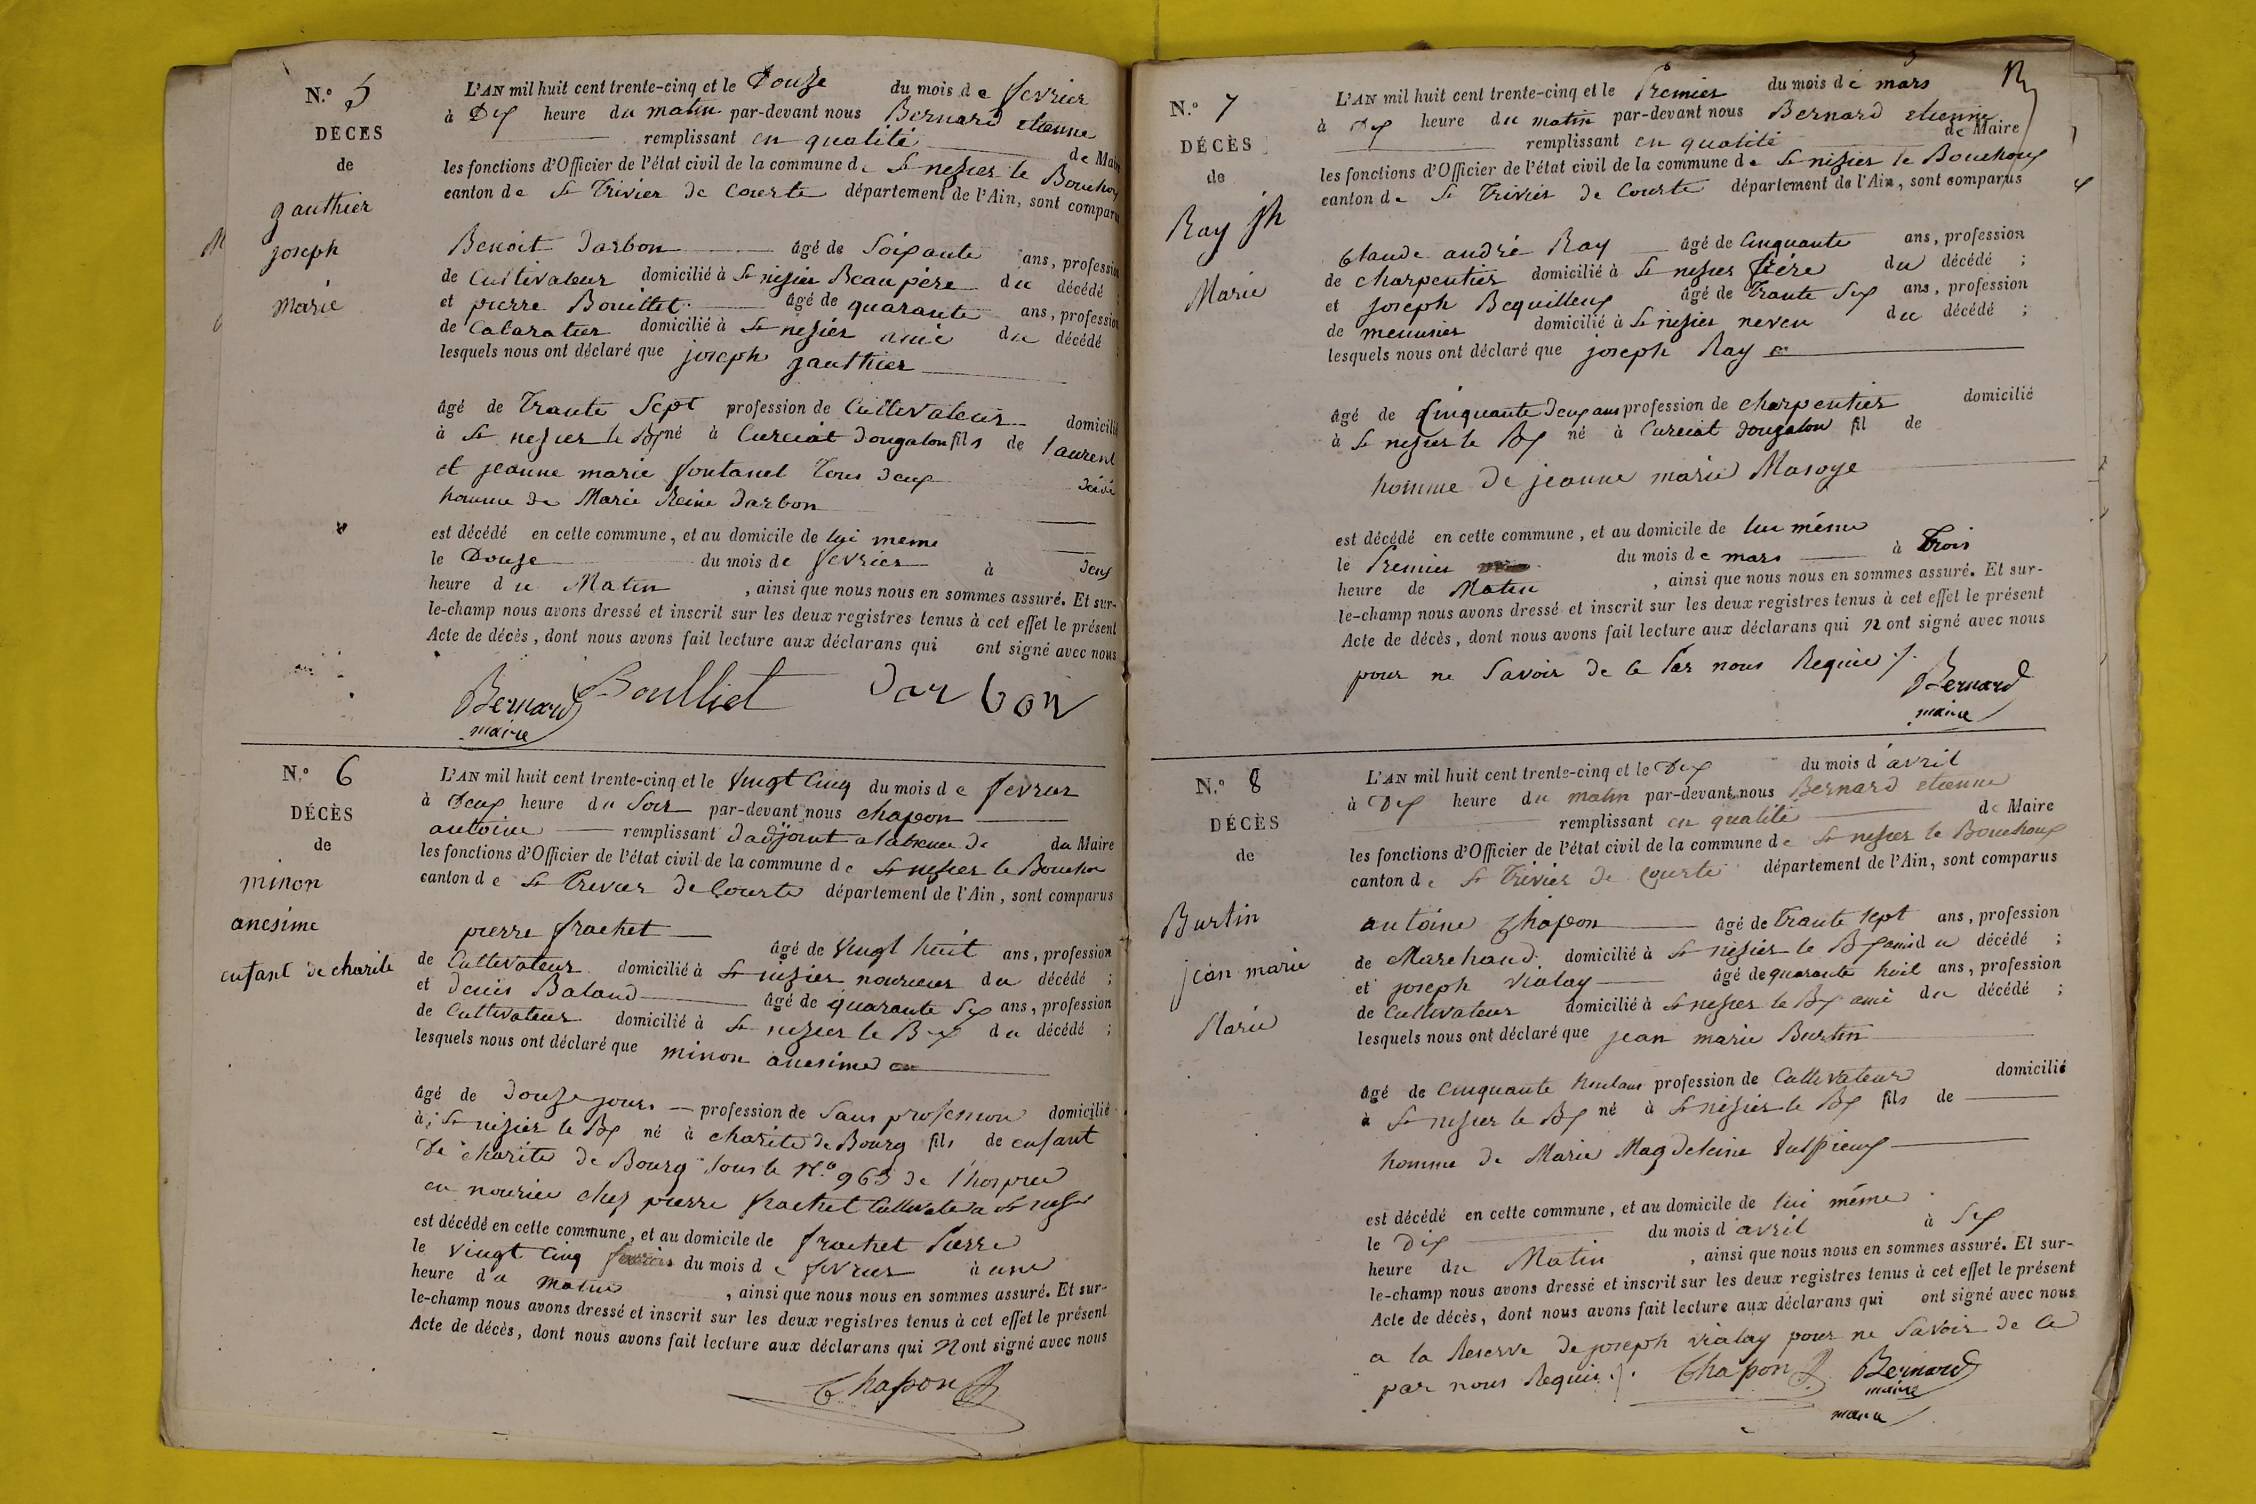 N.º 5
DÉCÈS
de
gauthier
joseph
marie
L'AN mil huit cent trente-cinq et le Douze du mois de fevrier
à Dix heure du matin par-devant nous Bernard etienne
remplissant en qualité de Maire
les fonctions d'Officier de l'état civil de la commune de St nizier le Bouchoux
canton de St Trivier de Courte département de l'Ain, sont comparus
Benoit Darbon âgé de Soixante ans, profession
de Cultivateur domicilié à St nizier Beaupère du décédé ;
et pierre Bouillet âgé de quarante ans, profession
de Cabaratier domicilié à St nizier amie du décédé
lesquels nous ont déclaré que joseph gauthier
âgé de Trante Sept profession de Cultivateur domicilié
à St nizier le Bx né à Curciat dongalon fils de laurent
et jeanne marie fontanel tous deux
homme de Marie Reine Darbon
est décédé en cette commune, et au domicile de lui meme
le Douze du mois de fevrier à deux
heure du Matin , ainsi que nous nous en sommes assuré. Et sur-
le-champ nous avons dressé et inscrit sur les deux registres tenus à cet effet le présent
Acte de décès, dont nous avons fait lecture aux déclarans qui ont signé avec nous
Bernard Boulliet Darbon
maire
N.º 6
DÉCÈS
de
minon
anesime
enfant de charité
L'AN mil huit cent trente-cinq et le vingt Cinq du mois de fevrier
à Deux heure du Soir par-devant nous chapon
antoine remplissant dadjoint a labsence de du Maire
les fonctions d'Officier de l'état civil de la commune de St nizier le Bouchou
canton de St Trevier de Courte département de l'Ain, sont comparus
pierre frachet
âgé de vingt huit ans, profession
de Cultivateur domicilié à St nizier nouricier du décédé ;
et denis Baland âgé de quarante Six ans, profession
de Cultivateur domicilié à St nizier le Bx du décédé ;
lesquels nous ont déclaré que minon anesime
âgé de Douze jours profession de Sans profession domicilié
à St nizier le Bx né à charité de Bourg fils de enfant
De charité de Bourg Sous le N.º 963 de l'hospice
en nourice chez pierre frachet Cultivate a St nizi
est décédé en cette commune, et au domicile de frachet Pierre
le vingt Cinq du mois de fevrier à une
heure du matin , ainsi que nous nous en sommes assuré. Et sur-
le-champ nous avons dressé et inscrit sur les deux registres tenus à cet effet le présent
Acte de décès, dont nous avons fait lecture aux déclarans qui N ont signé avec nous
Chapon
N.º 7
DÉCÈS
de
Ray jh
Marie
L'AN mil huit cent trente-cinq et le Premier du mois de mars
à Dix heure du matin par-devant nous Bernard etienne
remplissant en qualité de Maire
les fonctions d'Officier de l'état civil de la commune de St nizier le Bouchoux
canton de St Trivier de Courte département de l'Ain, sont comparus
Claude andré Ray âgé de Cinquante ans, profession
de charpentier domicilié à St nizier frère du décédé ;
et joseph Bequilleux âgé de Trante Six ans, profession
de menusier domicilié à St nizier neveu du décédé ;
lesquels nous ont déclaré que joseph Ray
âgé de Cinquante Deux ans profession de charpentier domicilié
à St nizier le Bx né à Curciat dongalon fil de
homme de jeanne marie Maroye
est décédé en cette commune, et au domicile de lui même
le Premier du mois de mars à Trois
heure de Matin , ainsi que nous nous en sommes assuré. Et sur-
le-champ nous avons dressé et inscrit sur les deux registres tenus à cet effet le présent
Acte de décès, dont nous avons fait lecture aux déclarans qui n ont signé avec nous
pour ne Savoir de ce Par nous Requie ./.
Bernard
maire
N.º 8
DÉCÈS
de
Burtin
jean marie
Marie
L'AN mil huit cent trente-cinq et le Dix du mois d'avril
à Dix heure du matin par-devant nous Bernard etienne
remplissant en qualité de Maire
les fonctions d'Officier de l'état civil de la commune de St nizier le Bouchoux
canton de St Trivier de Courte département de l'Ain, sont comparus
antoine Chapon âgé de Trante Sept ans, profession
de Marchand domicilié à St nizier le Bx ami du décédé ;
et joseph vialay âgé de quarante huit ans, profession
de Cultivateur domicilié à St nizier le Bx ami du décédé ;
lesquels nous ont déclaré que jean marie Burtin
âgé de cinquante huit ans profession de Cultivateur domicilié
à St nizier le Bx né à St nizier le Bx fils de
homme de Marie Magdeleine Vulpieux
est décédé en cette commune, et au domicile de lui même
le Dix du mois d'avril à Six
heure du Matin , ainsi que nous nous en sommes assuré. Et sur-
le-champ nous avons dressé et inscrit sur les deux registres tenus à cet effet le présent
Acte de décès, dont nous avons fait lecture aux déclarans qui ont signé avec nous
a la Reserve de joseph vialay pour ne Savoir de ce
par nous Requis ./. Chapon Bernard
maire
maire